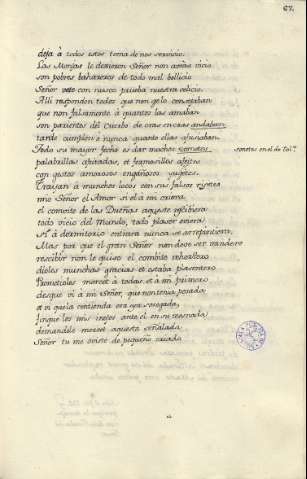 67.
deja à todos estos toma de nos servicio.
Las Monjas le dixieron Señor non avrias vicio
son pobres bahareros de todo mal bollicio
Señor vete con nusco prueba nuestra celicio.
Alli responden todos que non gelo consejaban
que non falsamente à quantos las amaban
son parientas del Cuerbo de cras encras andaban
tarde cumplen ò nunca quanto ellas afusiaban.
Todo su mayor fecho es dar muchos sometes
sometes en el de Tol.º
palabrillas afeitadas, et fermosillas afeites
con gestos amorosos engañosos juguetes
Trahian à munchos locos con sus falsos risetes
mio Señor el Amor si el a mi creiera
el comvite de las Dueñas aqueste rescibiera
todo vicio del Mundo, todo placer oviera
si à dormitorio entrara nunca se arrepintiera.
Mas por que el gran Señor non deve ser vandero
rescibir non le quiso el combite refertero
dioles munchas gracias et estaba placentero
Prometioles merced à todos, et à mi primero
desque vi à mi Señor, que non tenia posada
et vi que la contienda era ya sosegada,
finque los mis inojos ante el en su mesnada
demandele merced aquesta señalada.
Señor tu me oviste de pequeño criado